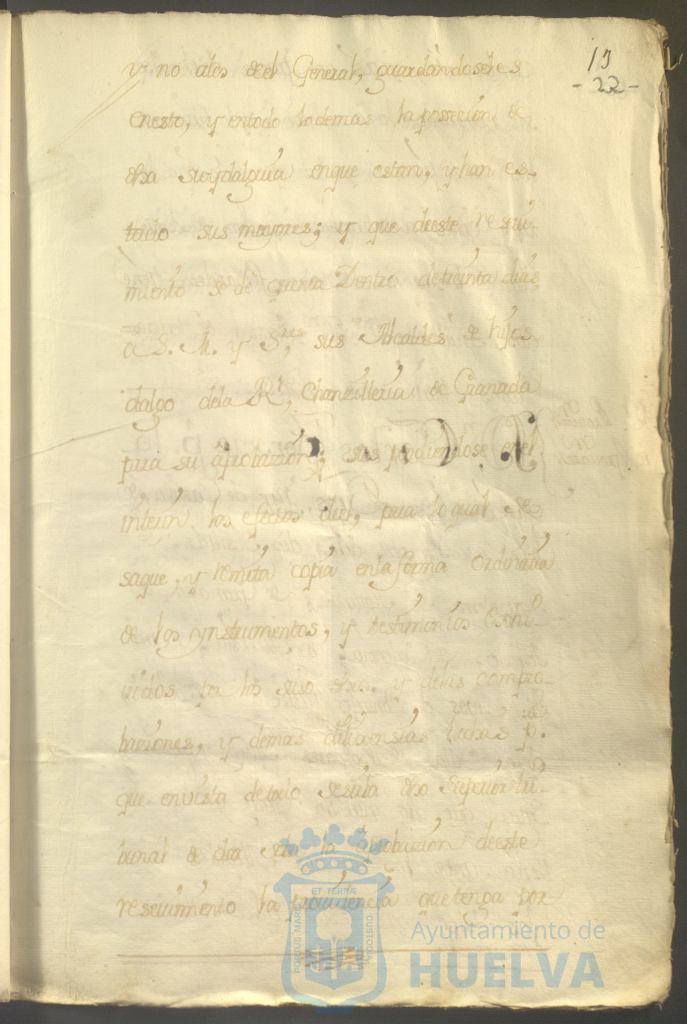 13
-22-
y no alos del General, guardandoseles
enesto, y entodo lo demas la posecion de
dha suydalguia enque estan, y han es-
tado sus mayores; y que deeste resiui-
miento se de quenta Dentro de treinta dias
a S. M. y S.res sus Alcaldes de hijos
dalgo dela R.l Chanzilleria de Granada
para su aprobazion; suspendiendose enel
interin los efectos del, para lo qual se
saque, y remita copia enla forma ordinaria
de los ynstrumentos, y testimonios
y delas compro-
baciones, y demas dilixensias fechas p.a
que envista detodo se sirba dho Superior tri-
bunal de dar para la aprobazion deeste
reseiuimiento la prouidencia quetenga por
PORTUS MARIS ET TERRÆ CUSTODIA
Ayuntamiento de
HUELVA